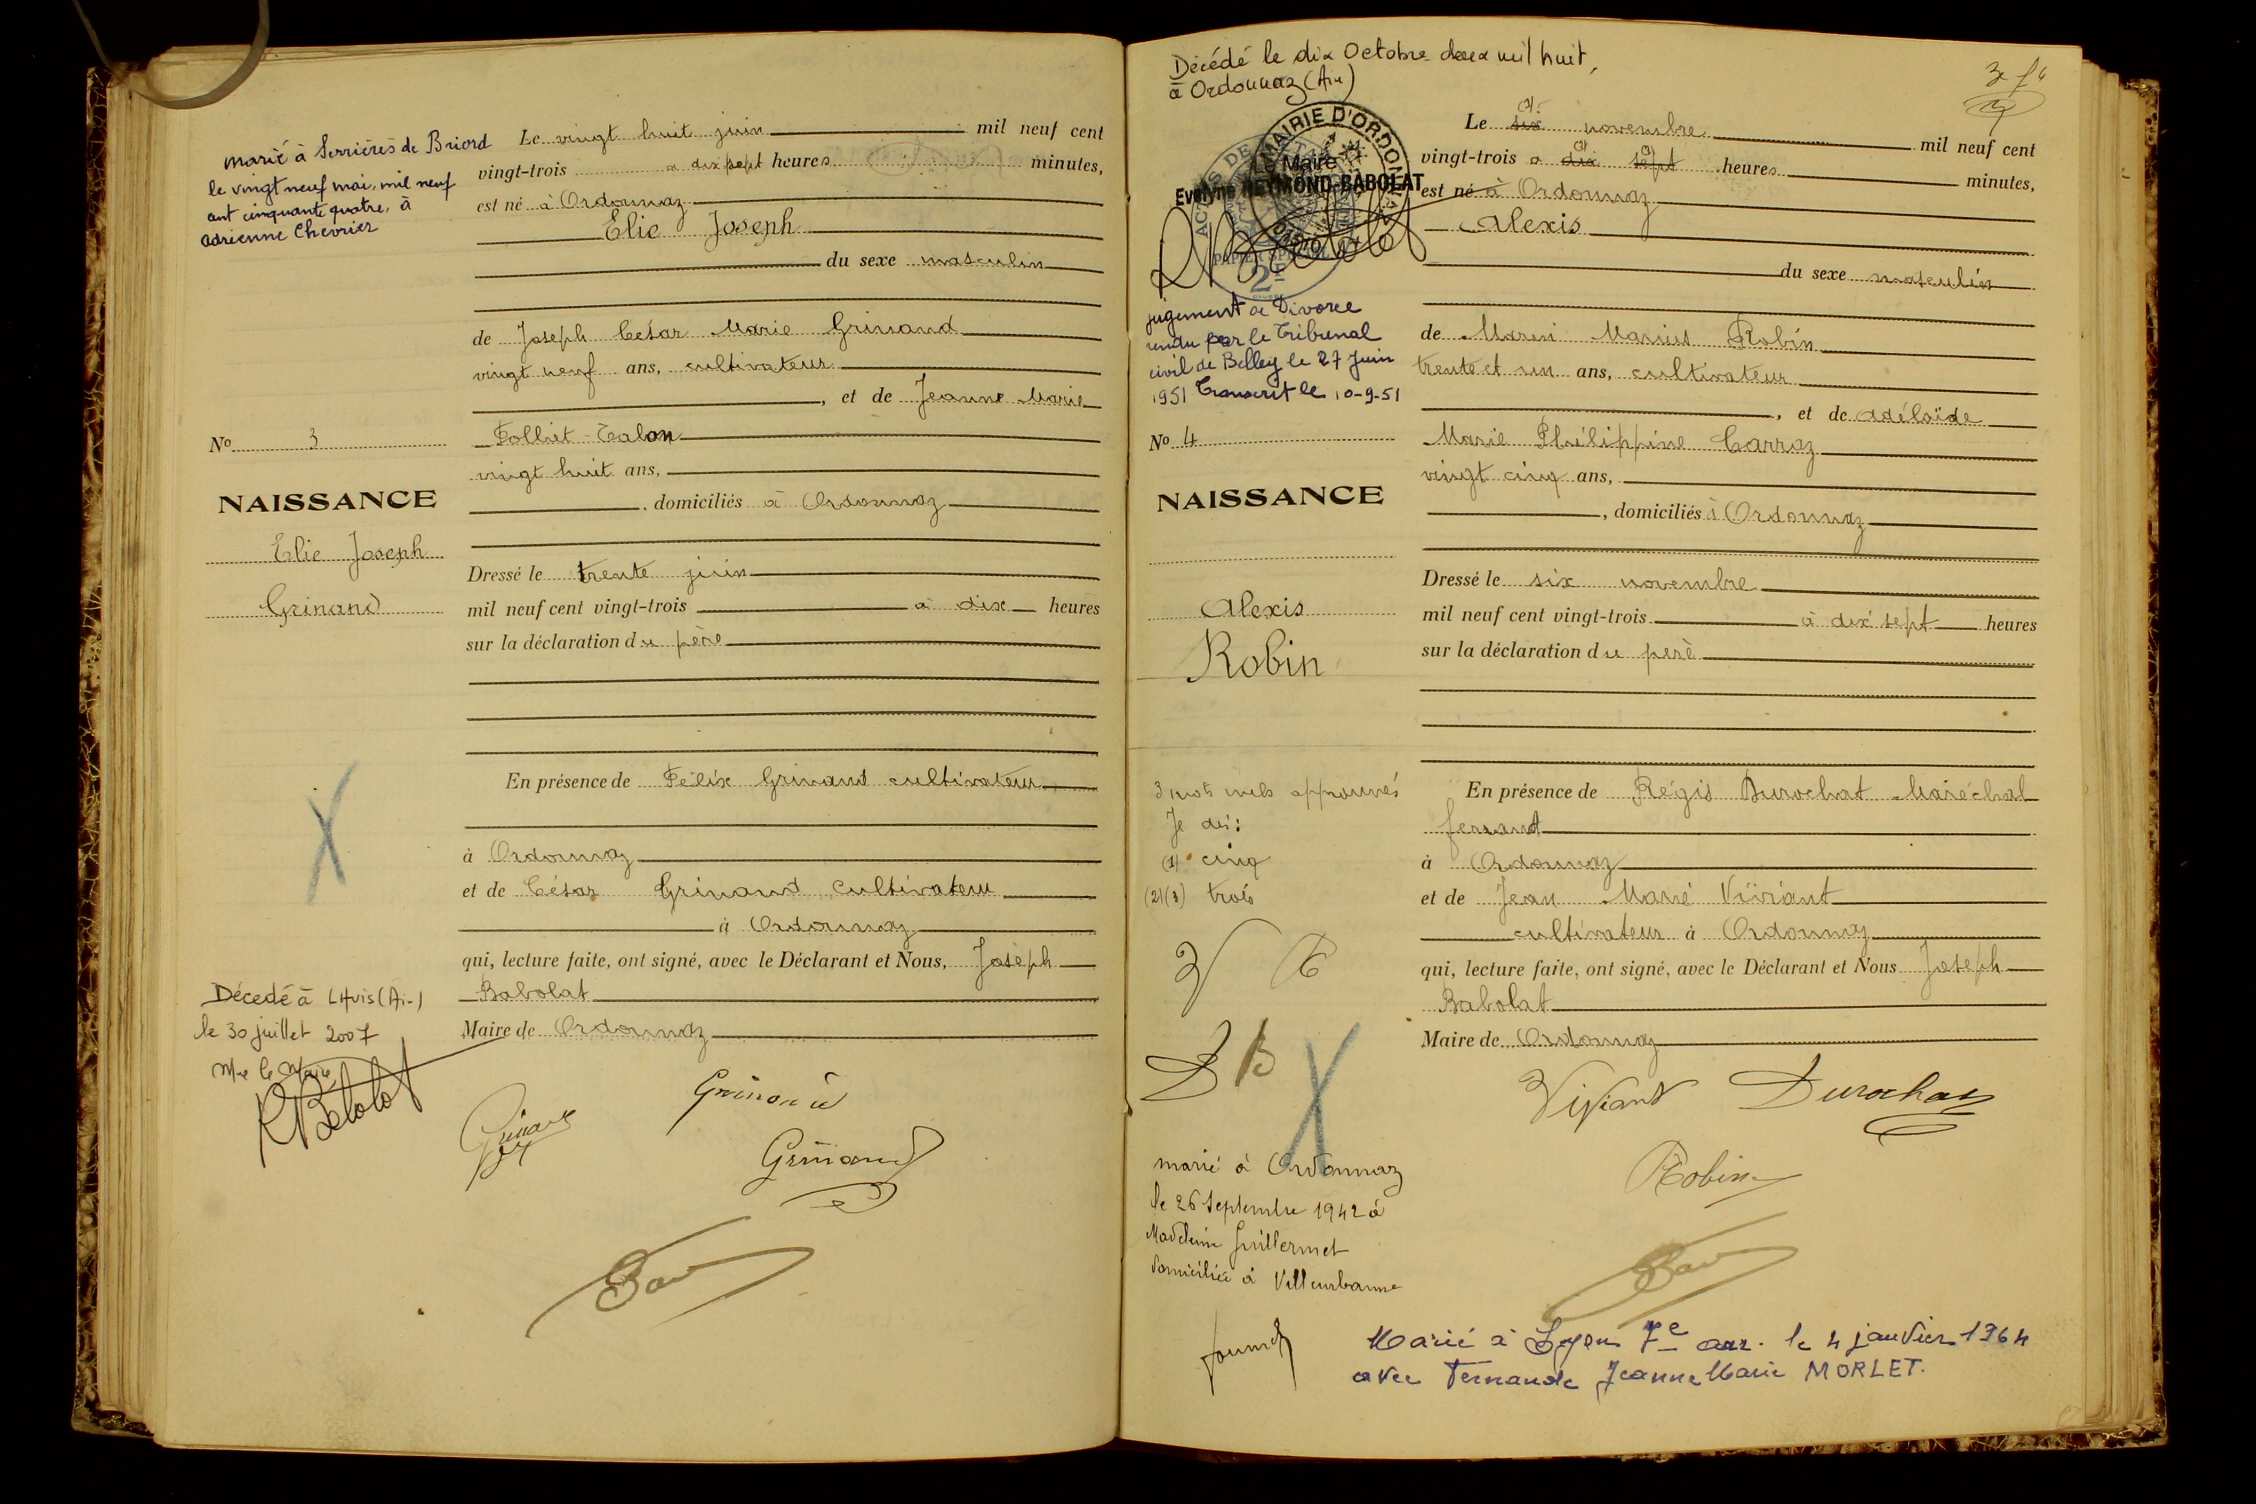 marié à Serrières de Briord
le vingt neuf mai, mil neuf
cent cinquante quatre, à
Adrienne Chevrier
No 3
NAISSANCE
Elie Joseph
Grinand
Décedé à Lhuis (Ain)
le 30 juillet 2007
Le Maire
RBabolat
Le vingt huit juin mil neuf cent
vingt-trois à dix sept heures minutes,
est né à Ordonnaz
Elie Joseph
du sexe masculin
de Joseph César Marie Grinand
vingt neuf ans, cultivateur
, et de Jeanne Marie
Folliet-Talon
vingt huit ans,
, domiciliés à Ordonnaz
Dressé le trente juin
mil neuf cent vingt-trois à dix heures
sur la déclaration du père
En présence de Félix Grinand cultivateur
à Ordonnaz
et de César Grinand cultivateur
à Ordonnaz
qui, lecture faite, ont signé, avec le Déclarant et Nous, Joseph
Babolat
Maire de Ordonnaz
Grinand
Grinand
Grinand
Décédé le dix Octobre deux mil huit,
à Ordonnaz (Ain)
MAIRIE D'ORDONNAZ
Le Maire
Evelyne REYMOND-BABOLAT
PAPIER SPECIAL
2F
jugement de Divorce
rendu par le Tribunal
civil de Belley le 27 Juin
1951 Transcrit le 10-9-51
No 4
NAISSANCE
Alexis
Robin
3 mots nuls approuvés
Je dis:
(1) cinq
(2)(3) trois
V R
D B
marié à Ordonnaz
le 26 Septembre 1942 à
Madeleine Guillermet
domiciliée à Villeurbanne
Le six (1) novembre mil neuf cent
vingt-trois à dix sept heures minutes,
est né à Ordonnaz
Alexis
du sexe masculin
de Marin Marius Robin
trente et un ans, cultivateur
, et de Adélaïde
Marie Philippine Carraz
vingt cinq ans,
, domiciliés à Ordonnaz
Dressé le six novembre
mil neuf cent vingt-trois à dix sept heures
sur la déclaration du père
En présence de Régis Durochat Maréchal
ferrant
à Ordonnaz
et de Jean Marie Viviant
cultivateur à Ordonnaz
qui, lecture faite, ont signé, avec le Déclarant et Nous Joseph
Babolat
Maire de Ordonnaz
Viviant Durochat
Robin
Marié à Lyon 7e arr. le 4 janvier 1964
avec Fernande Jeanne Marie MORLET.